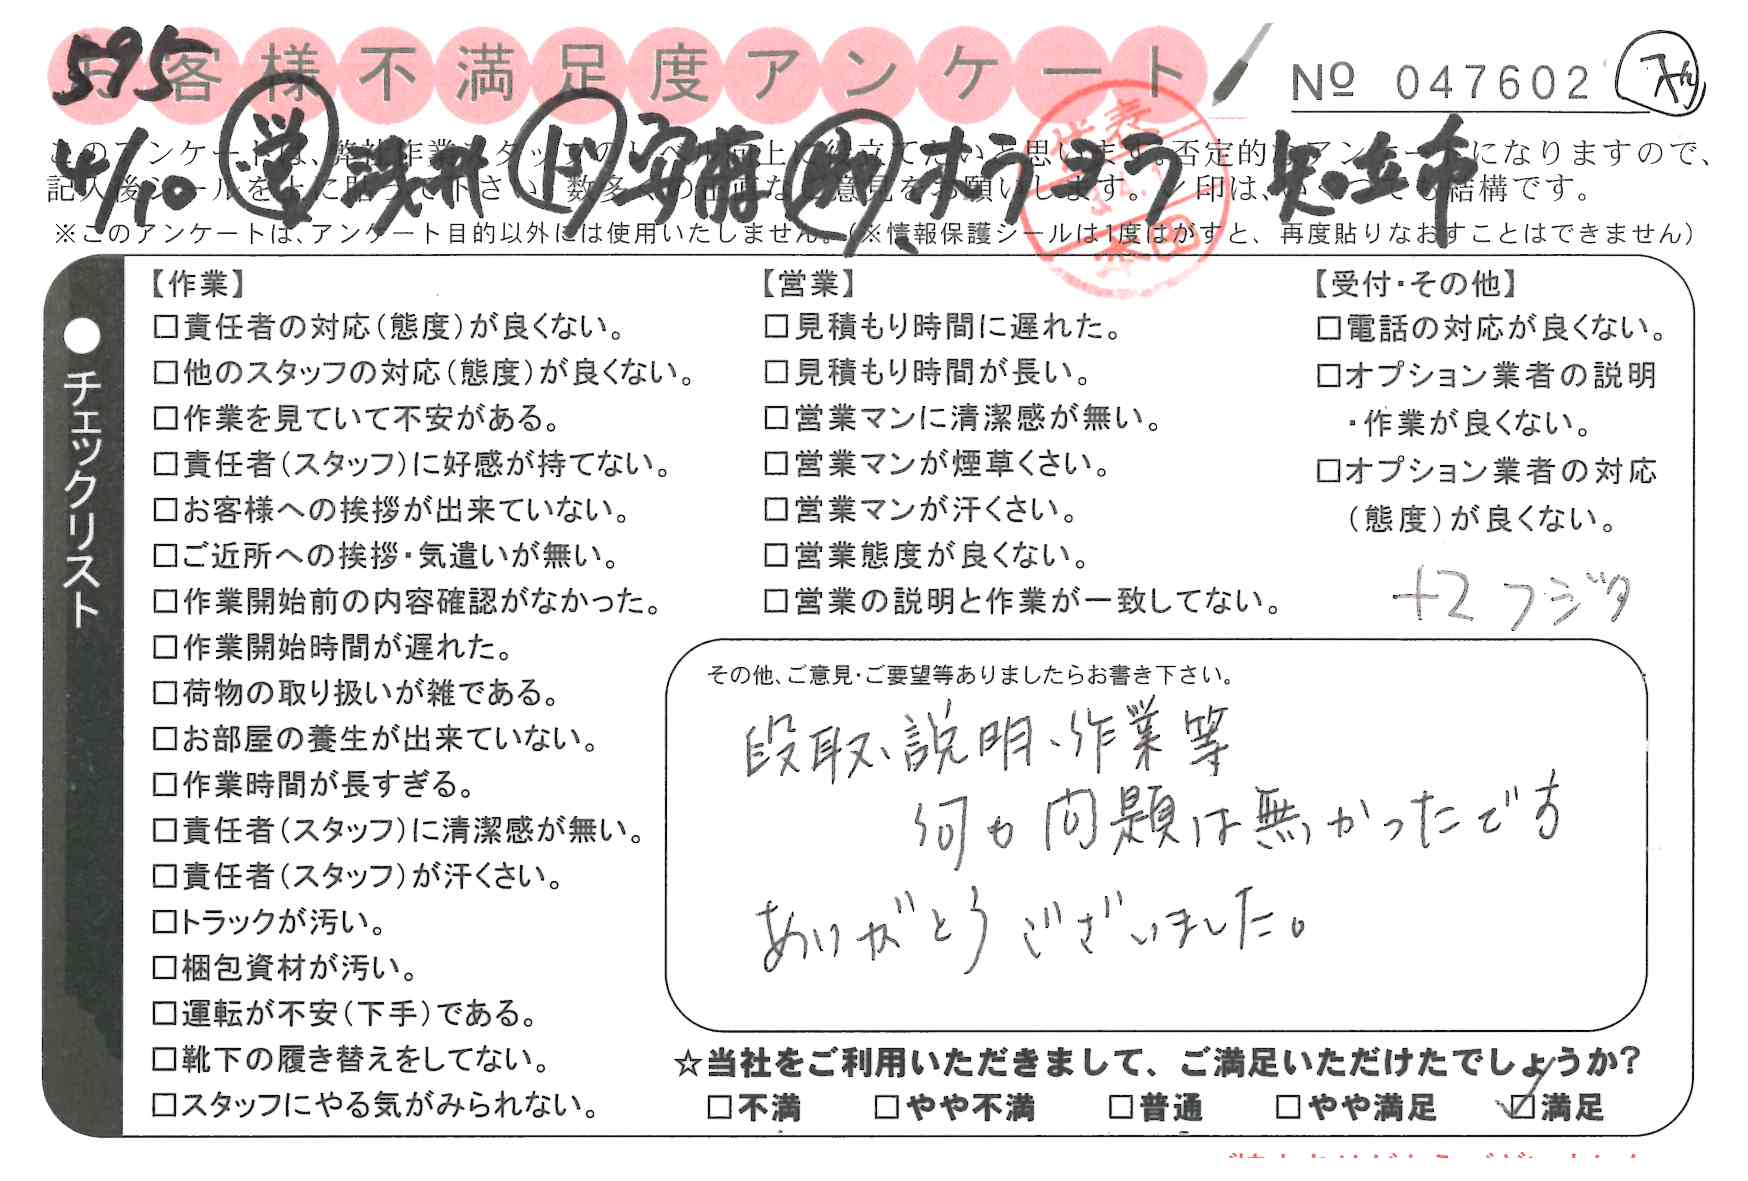 595
お客様不満足度アンケート
No 047602
4/10 営 浅井 ド 安藤 助 ホウヨウ 知立市
※このアンケートは、アンケート目的以外には使用いたしません。(※情報保護シールは1度はがすと、再度貼りなおすことはできません)
●チェックリスト
【作業】
□責任者の対応(態度)が良くない。
□他のスタッフの対応(態度)が良くない。
□作業を見ていて不安がある。
□責任者(スタッフ)に好感が持てない。
□お客様への挨拶が出来ていない。
□ご近所への挨拶・気遣いが無い。
□作業開始前の内容確認がなかった。
□作業開始時間が遅れた。
□荷物の取り扱いが雑である。
□お部屋の養生が出来ていない。
□作業時間が長すぎる。
□責任者(スタッフ)に清潔感が無い。
□責任者(スタッフ)が汗くさい。
□トラックが汚い。
□梱包資材が汚い。
□運転が不安(下手)である。
□靴下の履き替えをしてない。
□スタッフにやる気がみられない。
【営業】
□見積もり時間に遅れた。
□見積もり時間が長い。
□営業マンに清潔感が無い。
□営業マンが煙草くさい。
□営業マンが汗くさい。
□営業態度が良くない。
□営業の説明と作業が一致してない。
【受付・その他】
□電話の対応が良くない。
□オプション業者の説明
・作業が良くない。
□オプション業者の対応
(態度)が良くない。
+2 フジタ
その他、ご意見・ご要望等ありましたらお書き下さい。
段取、説明、作業等
何も問題は無かったです
ありがとうございました。
☆当社をご利用いただきまして、ご満足いただけたでしょうか?
□不満 □やや不満 □普通 □やや満足 ☑満足